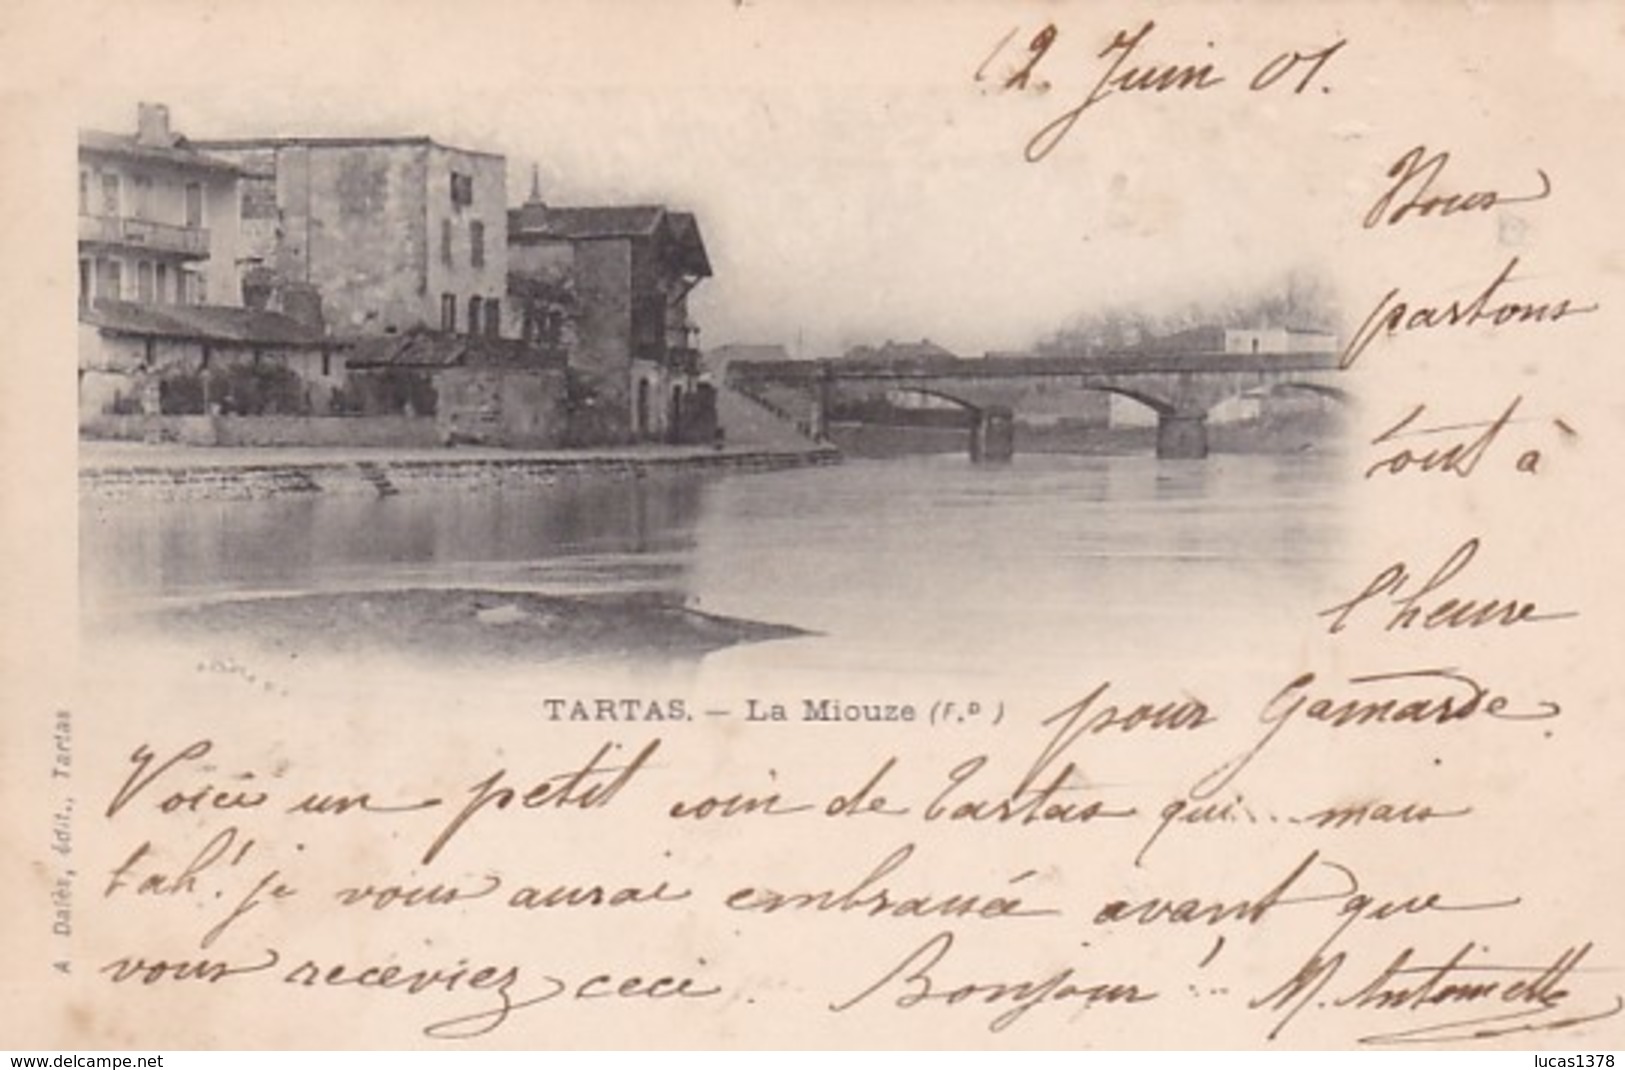 12. Juin 01.
Nous
partons
tout à
l'heure
pour Gamarde.
TARTAS. — La Miouze (F.D)
Voici un petit coin de Tartas qui... mais
bah! je vous aurai embrassé avant que
vous receviez ceci. Bonjour!.. M. Antoinette
A Dalès, édit., Tartas
www.delcampe.net
lucas1378